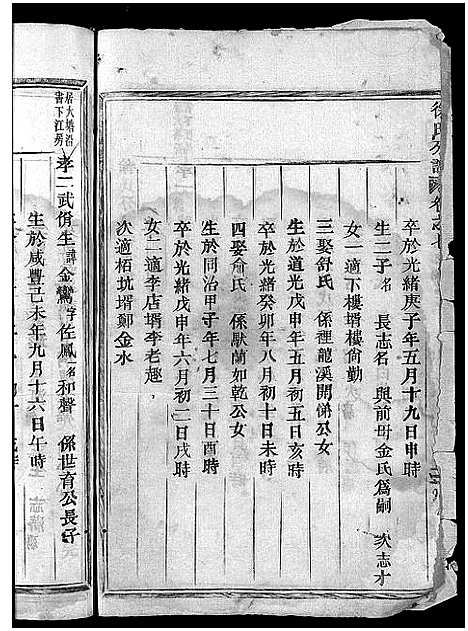 徐氏分譜 卷之七
卒於光緒庚子年五月十九日申時
生二子名 長志名曰 與前母金氏為嗣 次志才
女一適下樓壻樓尙勤
三娶舒氏 係裡龍溪開悌公女
生於道光戊申年五月初五日亥時
卒於光緒癸卯年八月初十日未時
四娶俞氏 係厭蘭如乾公女
生於同治甲子年七月三十日酉時
卒於光緒戊申年六月初二日戌時
女二適李店壻李老趣
次適栢坑壻鄭金水
居大塘沿
書下江房
孝二武俏生諱金鸞字佐鳳名和聲 係世育公長子
生於咸豐己未年九月十六日午時